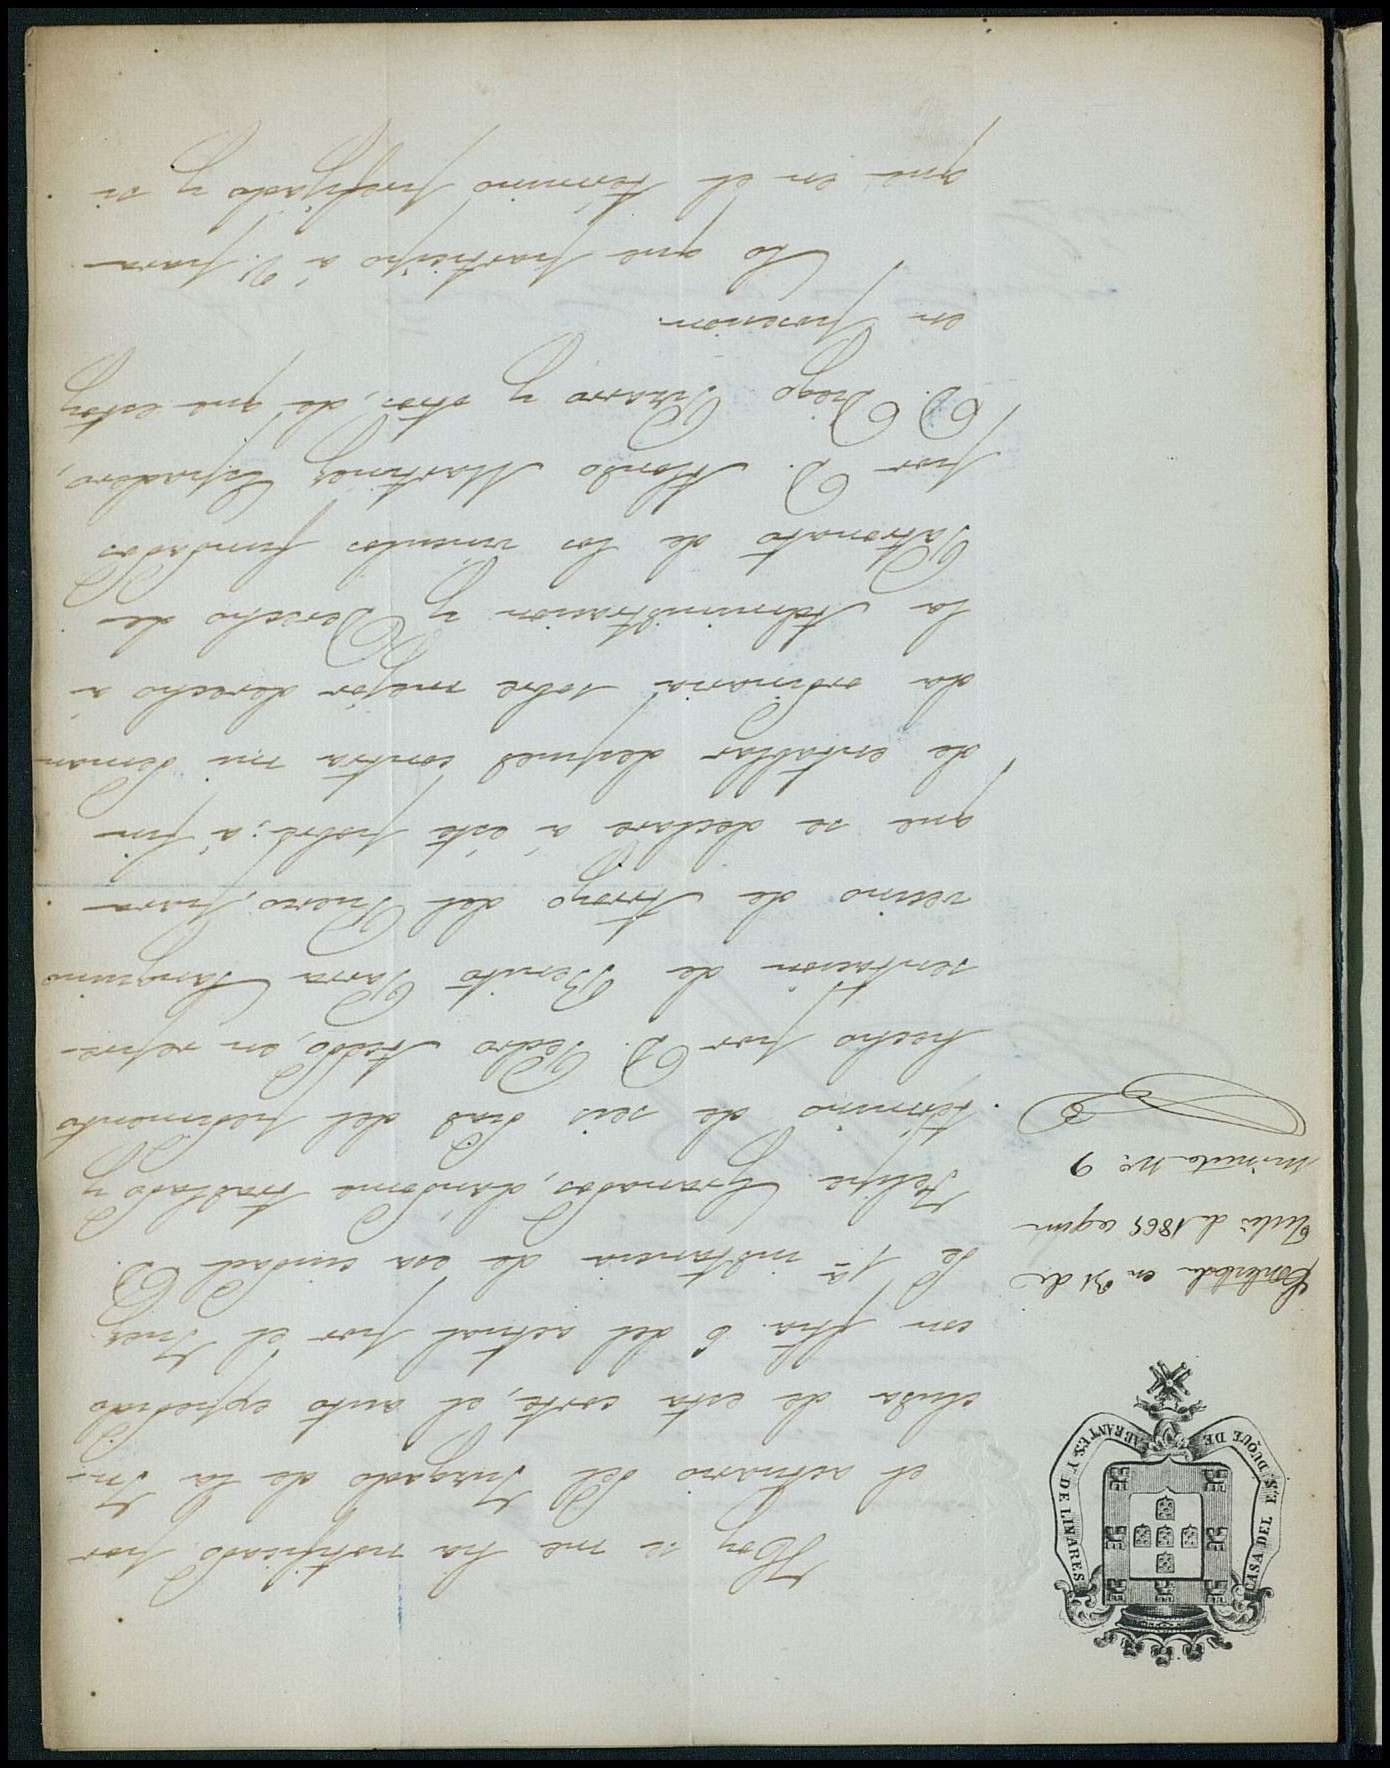 CASA DEL S.E. DUQUE DE ABRANTES Y DE LINARES
Contestada en 31 de
Julio de 1865 segun
minuta No. 9
Hoy se me ha notificado por
el actuario del Juzgado de la In-
clusa de esta corte, el auto expedido
con fha. 6 del actual por el Juez
de 1ª instancia de esa ciudad D.
Felipe Granados, dandome traslado y
término de seis dias del pedimento
hecho por D. Pedro Acedo, en repre-
sentacion de Benito Parra
vecino de Arroyo del Puerco, para
que se declare á éste pobre; á fin
de entablar despues contra mi deman-
da ordinaria sobre mejor derecho á
la Administracion y Derecho de
Patronato de los vinculos fundados
por D. Alonso Martinez Espadero,
D. Diego Pizarro y otros, de que estoy
en posesion.
Lo que participo á V. para
que en el término prefijado y si